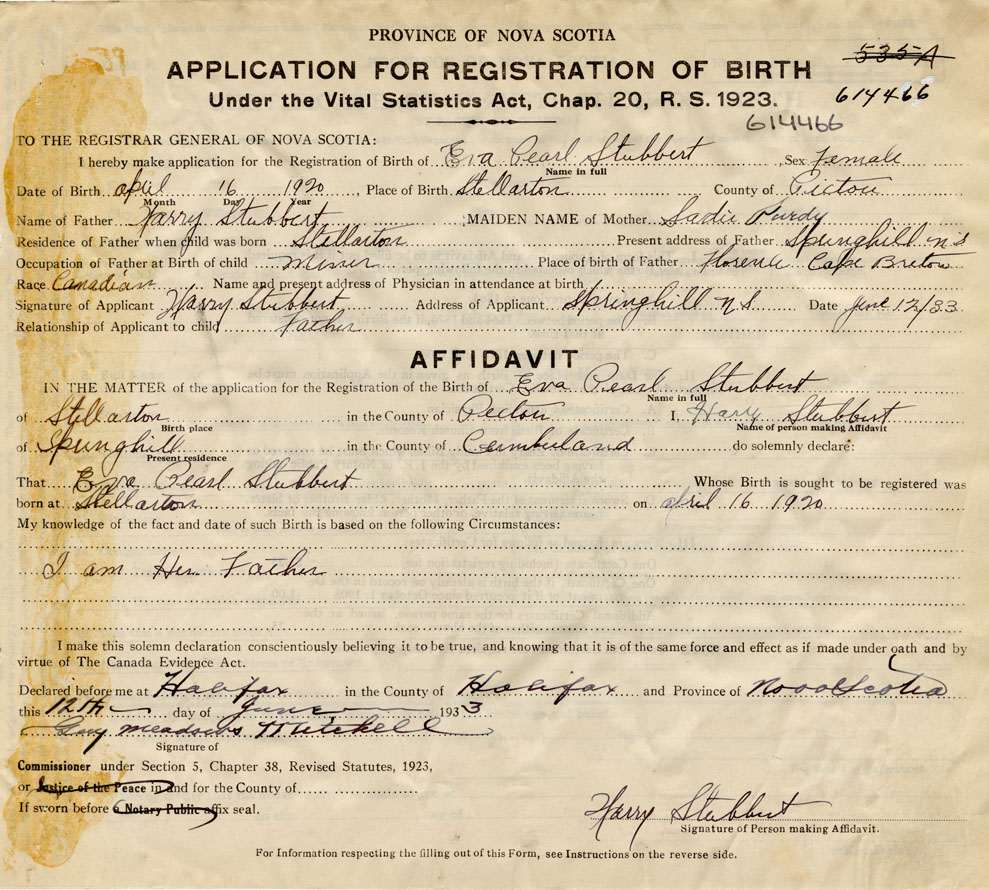 PROVINCE OF NOVA SCOTIA
535A
APPLICATION FOR REGISTRATION OF BIRTH
614466
Under the Vital Statistics Act, Chap. 20, R. S. 1923.
614466
TO THE REGISTRAR GENERAL OF NOVA SCOTIA:
I hereby make application for the Registration of Birth of Eva Pearl Stubbert Sex Female
Name in full
Date of Birth april 16 1920, Place of Birth Stellarton County of Pictou
Month Day Year
Name of Father Harry Stubbert MAIDEN NAME of Mother Sadie Purdy
Residence of Father when child was born Stellarton Present address of Father Springhill n.s
Occupation of Father at Birth of child Miner Place of birth of Father Florence Cape Breton
Race Canadian Name and present address of Physician in attendance at birth
Signature of Applicant Harry Stubbert Address of Applicant Springhill n.s Date June 12/33
Relationship of Applicant to child Father
AFFIDAVIT
IN THE MATTER of the application for the Registration of the Birth of Eva Pearl Stubbert
Name in full
of Stellarton in the County of Pictou I, Harry Stubbert
Birth place Name of person making Affidavit
of Springhill in the County of Cumberland do solemnly declare:
Present residence
That Eva Pearl Stubbert Whose Birth is sought to be registered was
born at Stellarton on april 16 1920
My knowledge of the fact and date of such Birth is based on the following Circumstances:
I am Her Father
I make this solemn declaration conscientiously believing it to be true, and knowing that it is of the same force and effect as if made under oath and by
virtue of The Canada Evidence Act.
Declared before me at Halifax in the County of Halifax and Province of Nova Scotia
this 12th day of June 1933
Guy Meadows Mitchell
Signature of
Commissioner under Section 5, Chapter 38, Revised Statutes, 1923,
or Justice of the Peace in and for the County of
If sworn before a Notary Public affix seal.
Harry Stubbert
Signature of Person making Affidavit.
For Information respecting the filling out of this Form, see Instructions on the reverse side.